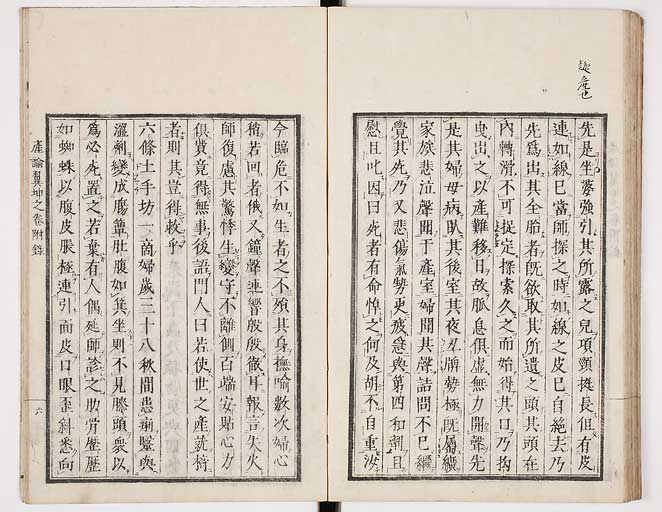 先是坐婆強引其所露之兒項頸挺長但有皮
連如線已當師探之時如線之皮已自絕去乃
先為出其全胎者既欲取其所遺之頭其頭在
內轉滑不可捉定探索久之而始得其口乃鉤
曳出之以產難移日故脈息俱虛無力開聲先
是其婦母病臥其後室其夜病勢極既屬纊
家族悲泣聲聞于產室婦聞其聲詰問不已纔
覺其死乃又悲傷氣勢更疲憊與第四和劑且
慰且叱因曰死者有命悼之何及胡不自重決
今臨危不如生者之不殞其身撫喻數次婦心
稍若回者俄又鐘聲連響殷殷徹耳報言失火
師復慮其驚悸生變守不離側百端安貼心力
俱竟得無事後語門人曰若使世之產就椅
者則其豈得救乎
六條土手坊一商婦歲三十八秋間患痢醫與
澀劑變成腸簟肚腹如箕坐則不見膝頭眾以
為必死置之若棄有人偶延師診之肋骨歷歷
如蜘蛛以腹皮脹極連引面皮口眼歪斜悉向
產論翼坤之卷附錄
六